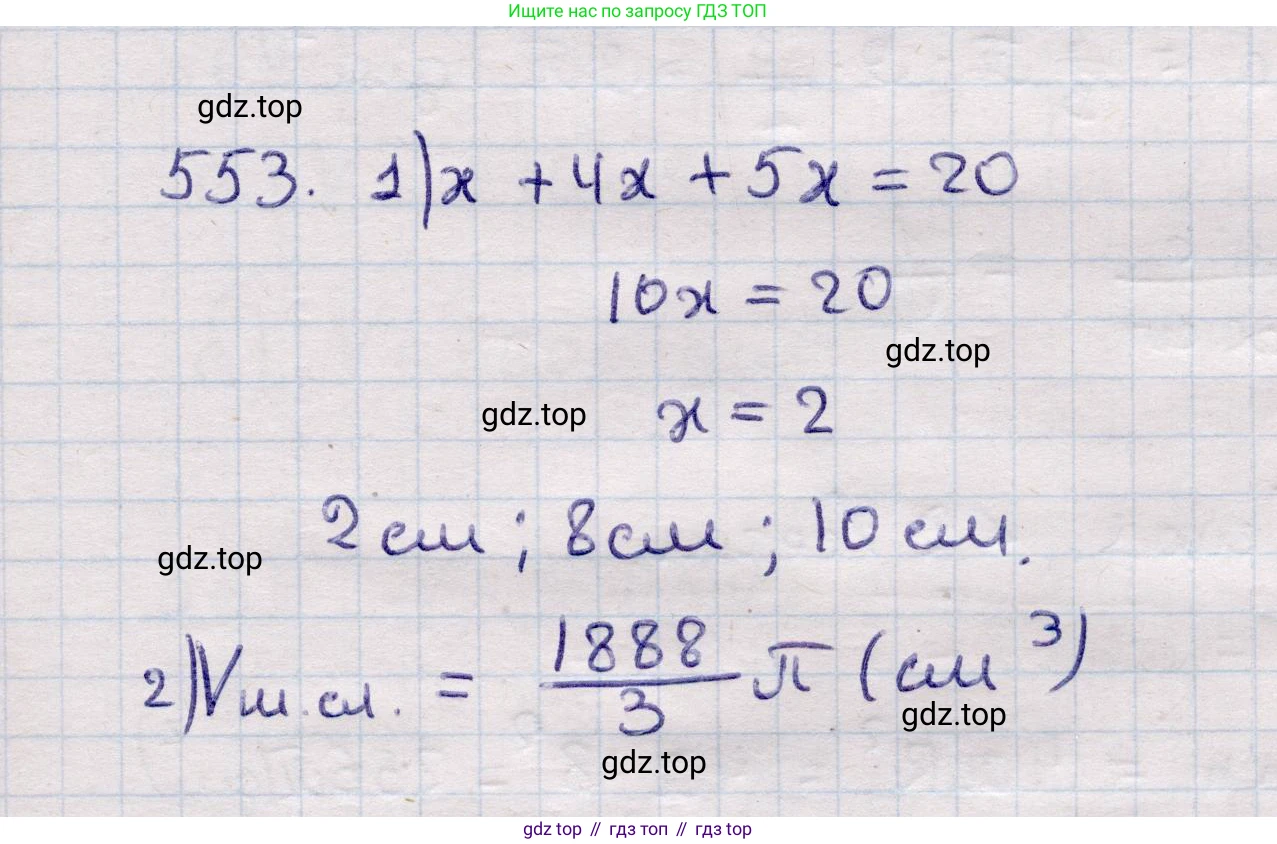 Ищите нас по запросу ГДЗ ТОП
gdz.top
553. 1) x + 4x + 5x = 20
10x = 20
gdz.top
gdz.top x = 2
2 см ; 8 см ; 10 см.
gdz.top
2) Vш.сл. = 1888/3 π (см³)
gdz.top
gdz.top
gdz top // гдз топ // гдз top